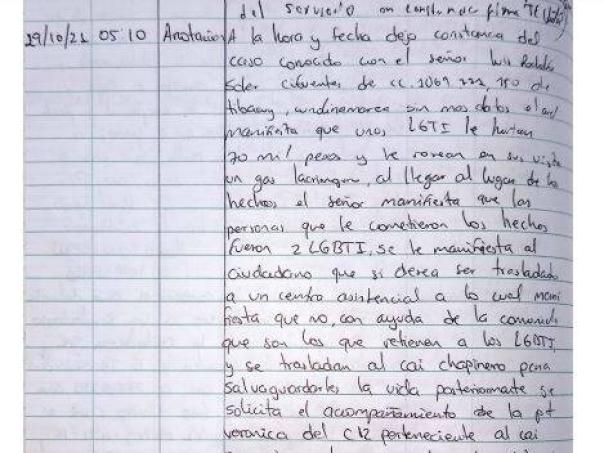 del servicio en constancia firma TE
29/10/21 05:10 Anotacion A la hora y fecha dejo constancia del
caso conocido con el señor Luis
Soler Cifuentes de CC. 1069.222,150 de
tibacuy, cundinamarca sin mas datos el cual
manifiesta que unos LGTI le hurtan
70 mil pesos y le rosean en sus vista
un gas lacrimogeno, al llegar al lugar de los
hechos el señor manifiesta que las
personas que le cometieron los hechos
fueron 2 LGBTI, se le manifiesta al
ciudadano que si desea ser trasladado
a un centro asistencial a lo cual mani
fiesta que no, con ayuda de la comunid
que son los que retienen a los LGBTI
y se trasladan al cai chapinero para
salvaguardarles la vida posteriormente se
solicita el acompañamiento de la pt
veronica del C12 perteneciente al cai